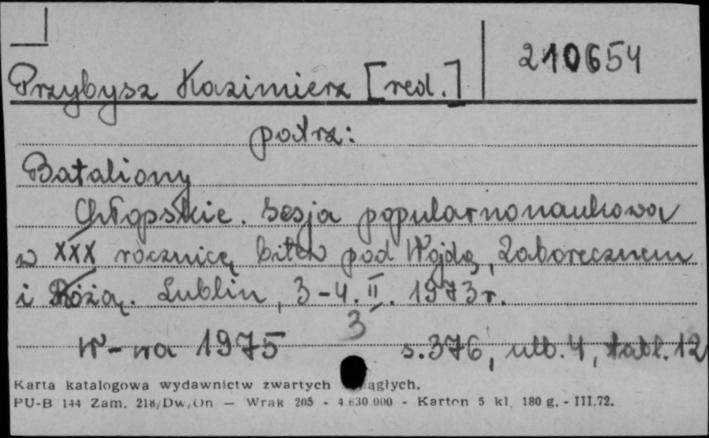 210654
Przybysz Kazimierz [red.]
patrz:
Bataliony
Chłopskie. Sesja popularnonaukowa
w XXX rocznicę bitew pod Wojdą, Zaborecznem
i Różą. Lublin, 3-4.II.1973r.
3
W-wa 1975 s.376, nlb.4, tabl.12
Karta katalogowa wydawnictw zwartych ciągłych.
PU-B 144 Zam. 218/Dw/On — Wrak 205 - 4.630.000 - Karton 5 kl. 180 g. - III.72.